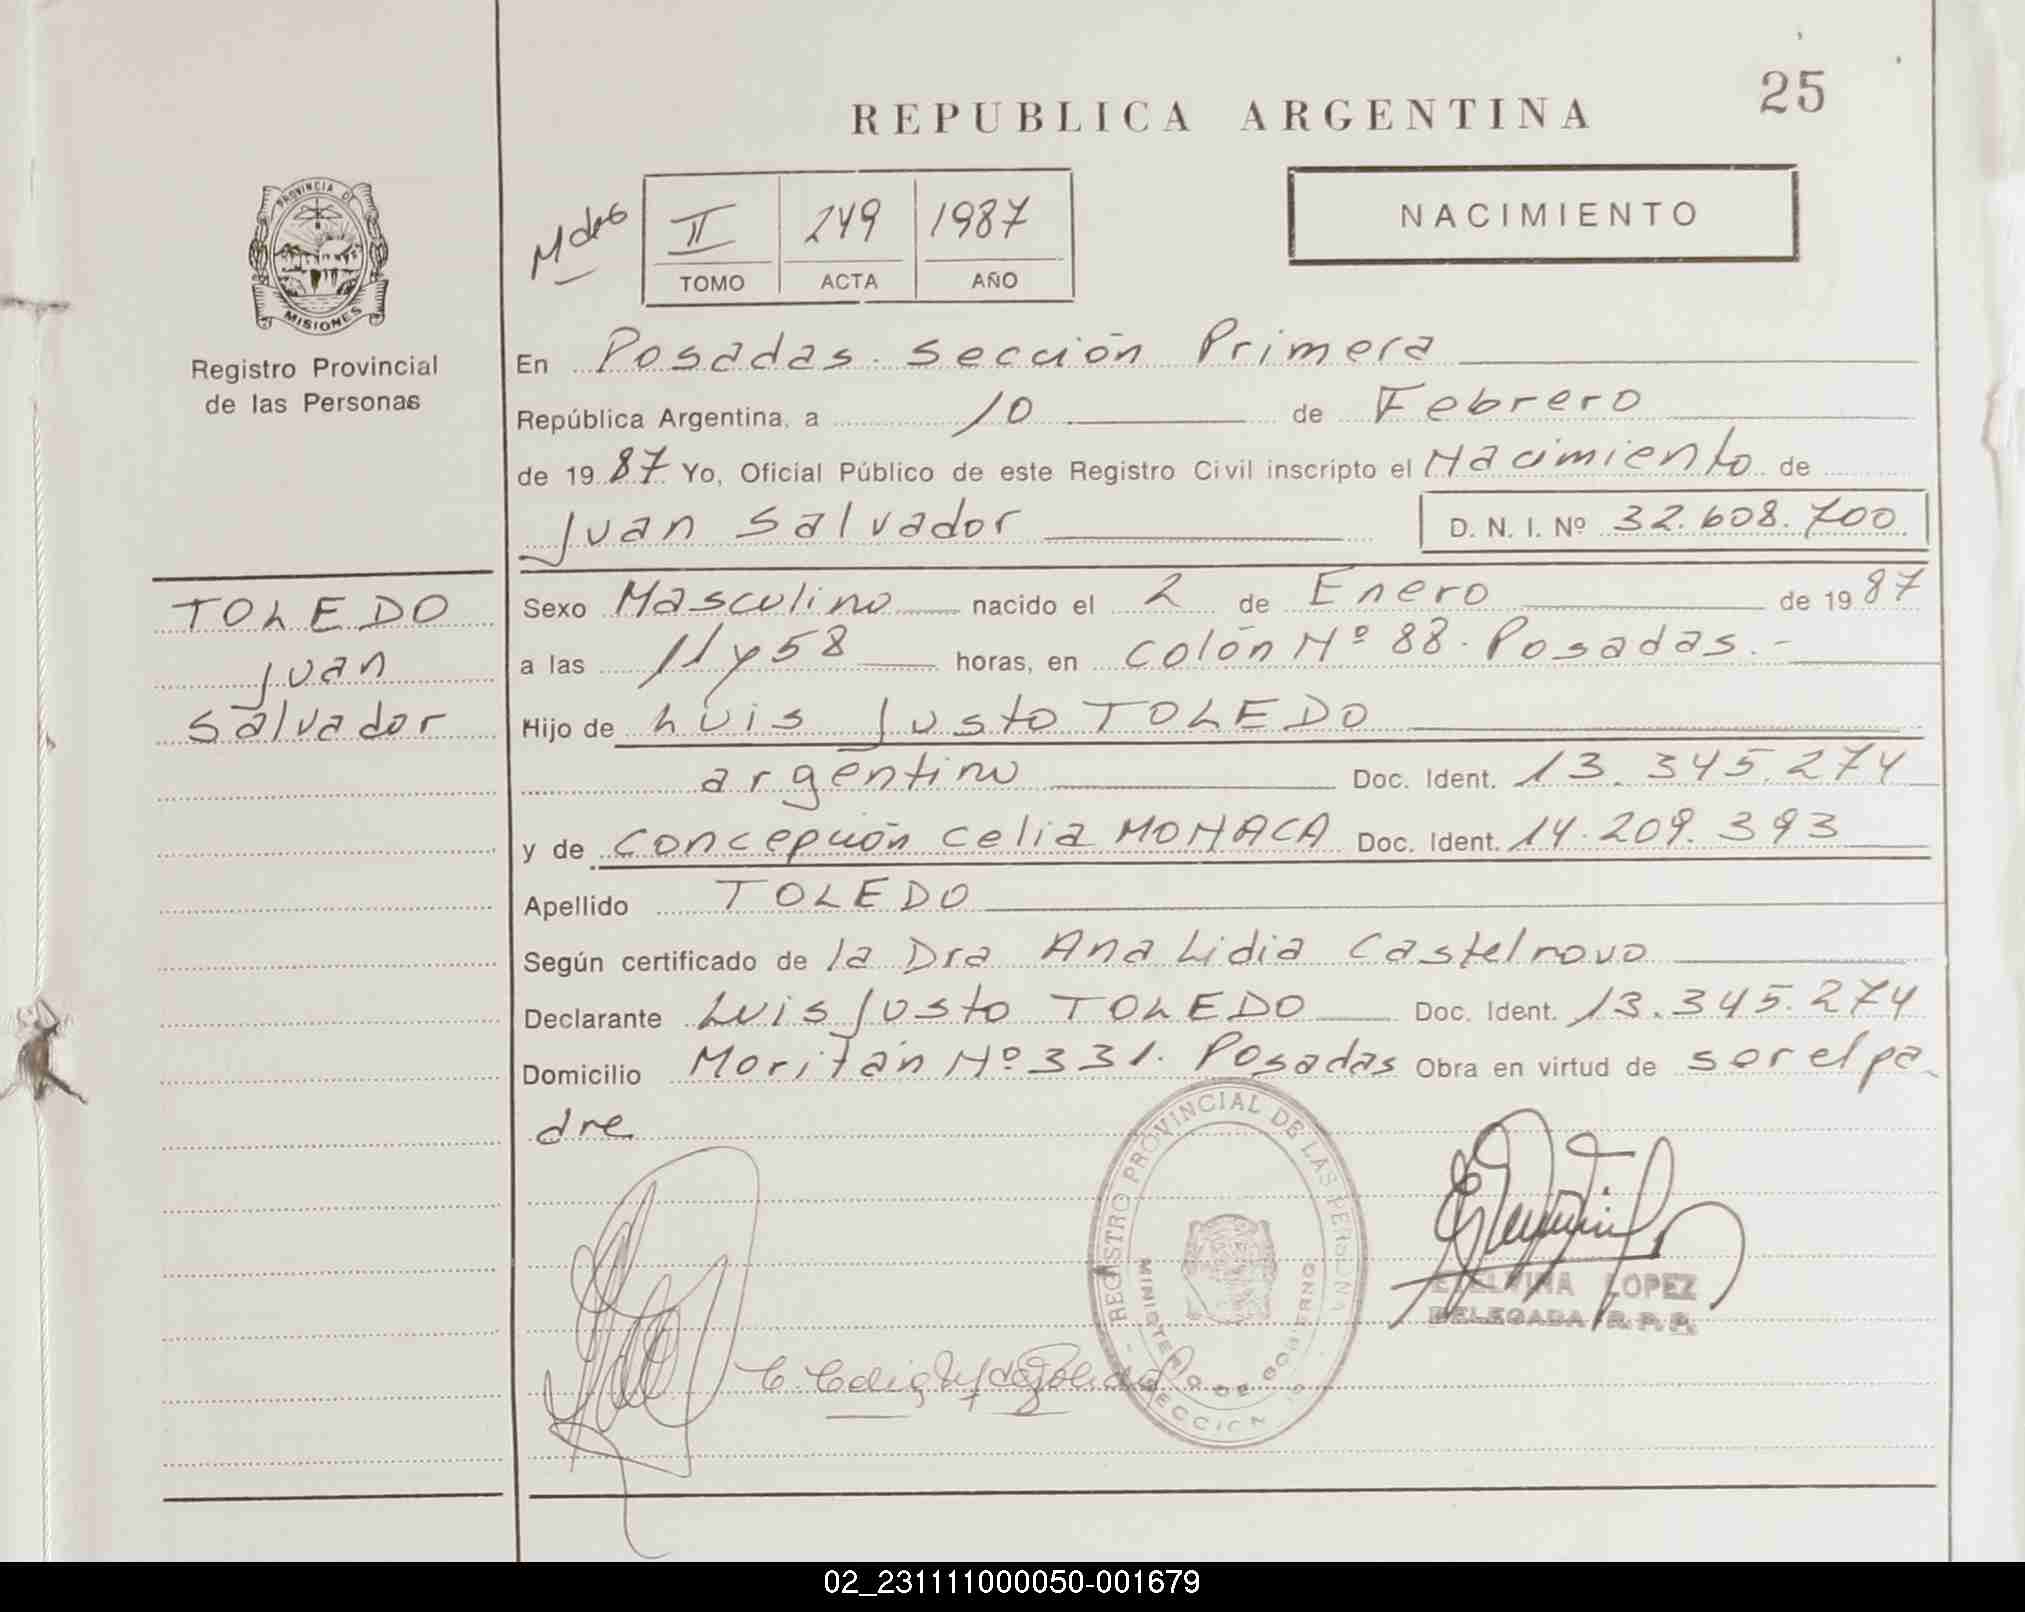 REPUBLICA ARGENTINA
25
Mdes
II 249 1987
TOMO ACTA AÑO
NACIMIENTO
PROVINCIA DE
MISIONES
Registro Provincial
de las Personas
En Posadas. Sección Primera
República Argentina, a 10 de Febrero
de 1987 Yo, Oficial Público de este Registro Civil inscripto el Nacimiento de
Juan Salvador D. N. I. Nº 32.608.700
TOLEDO
Juan
Salvador
Sexo Masculino nacido el 2 de Enero de 1987
a las 11 y 58 horas, en Colón Nº 88. Posadas.-
Hijo de Luis Justo TOLEDO
argentino Doc. Ident. 13.345.274
y de Concepción Celia MONACA Doc. Ident. 14.209.393
Apellido TOLEDO
Según certificado de la Dra Ana Lidia Castelnovo
Declarante Luis Justo TOLEDO Doc. Ident. 13.345.274
Domicilio Moritán Nº 331. Posadas Obra en virtud de ser el pa-
dre
REGISTRO PROVINCIAL DE LAS PERSONAS
MINISTERIO DE GOBIERNO
LOPEZ
DELEGADA R. P. P.
02_231111000050-001679